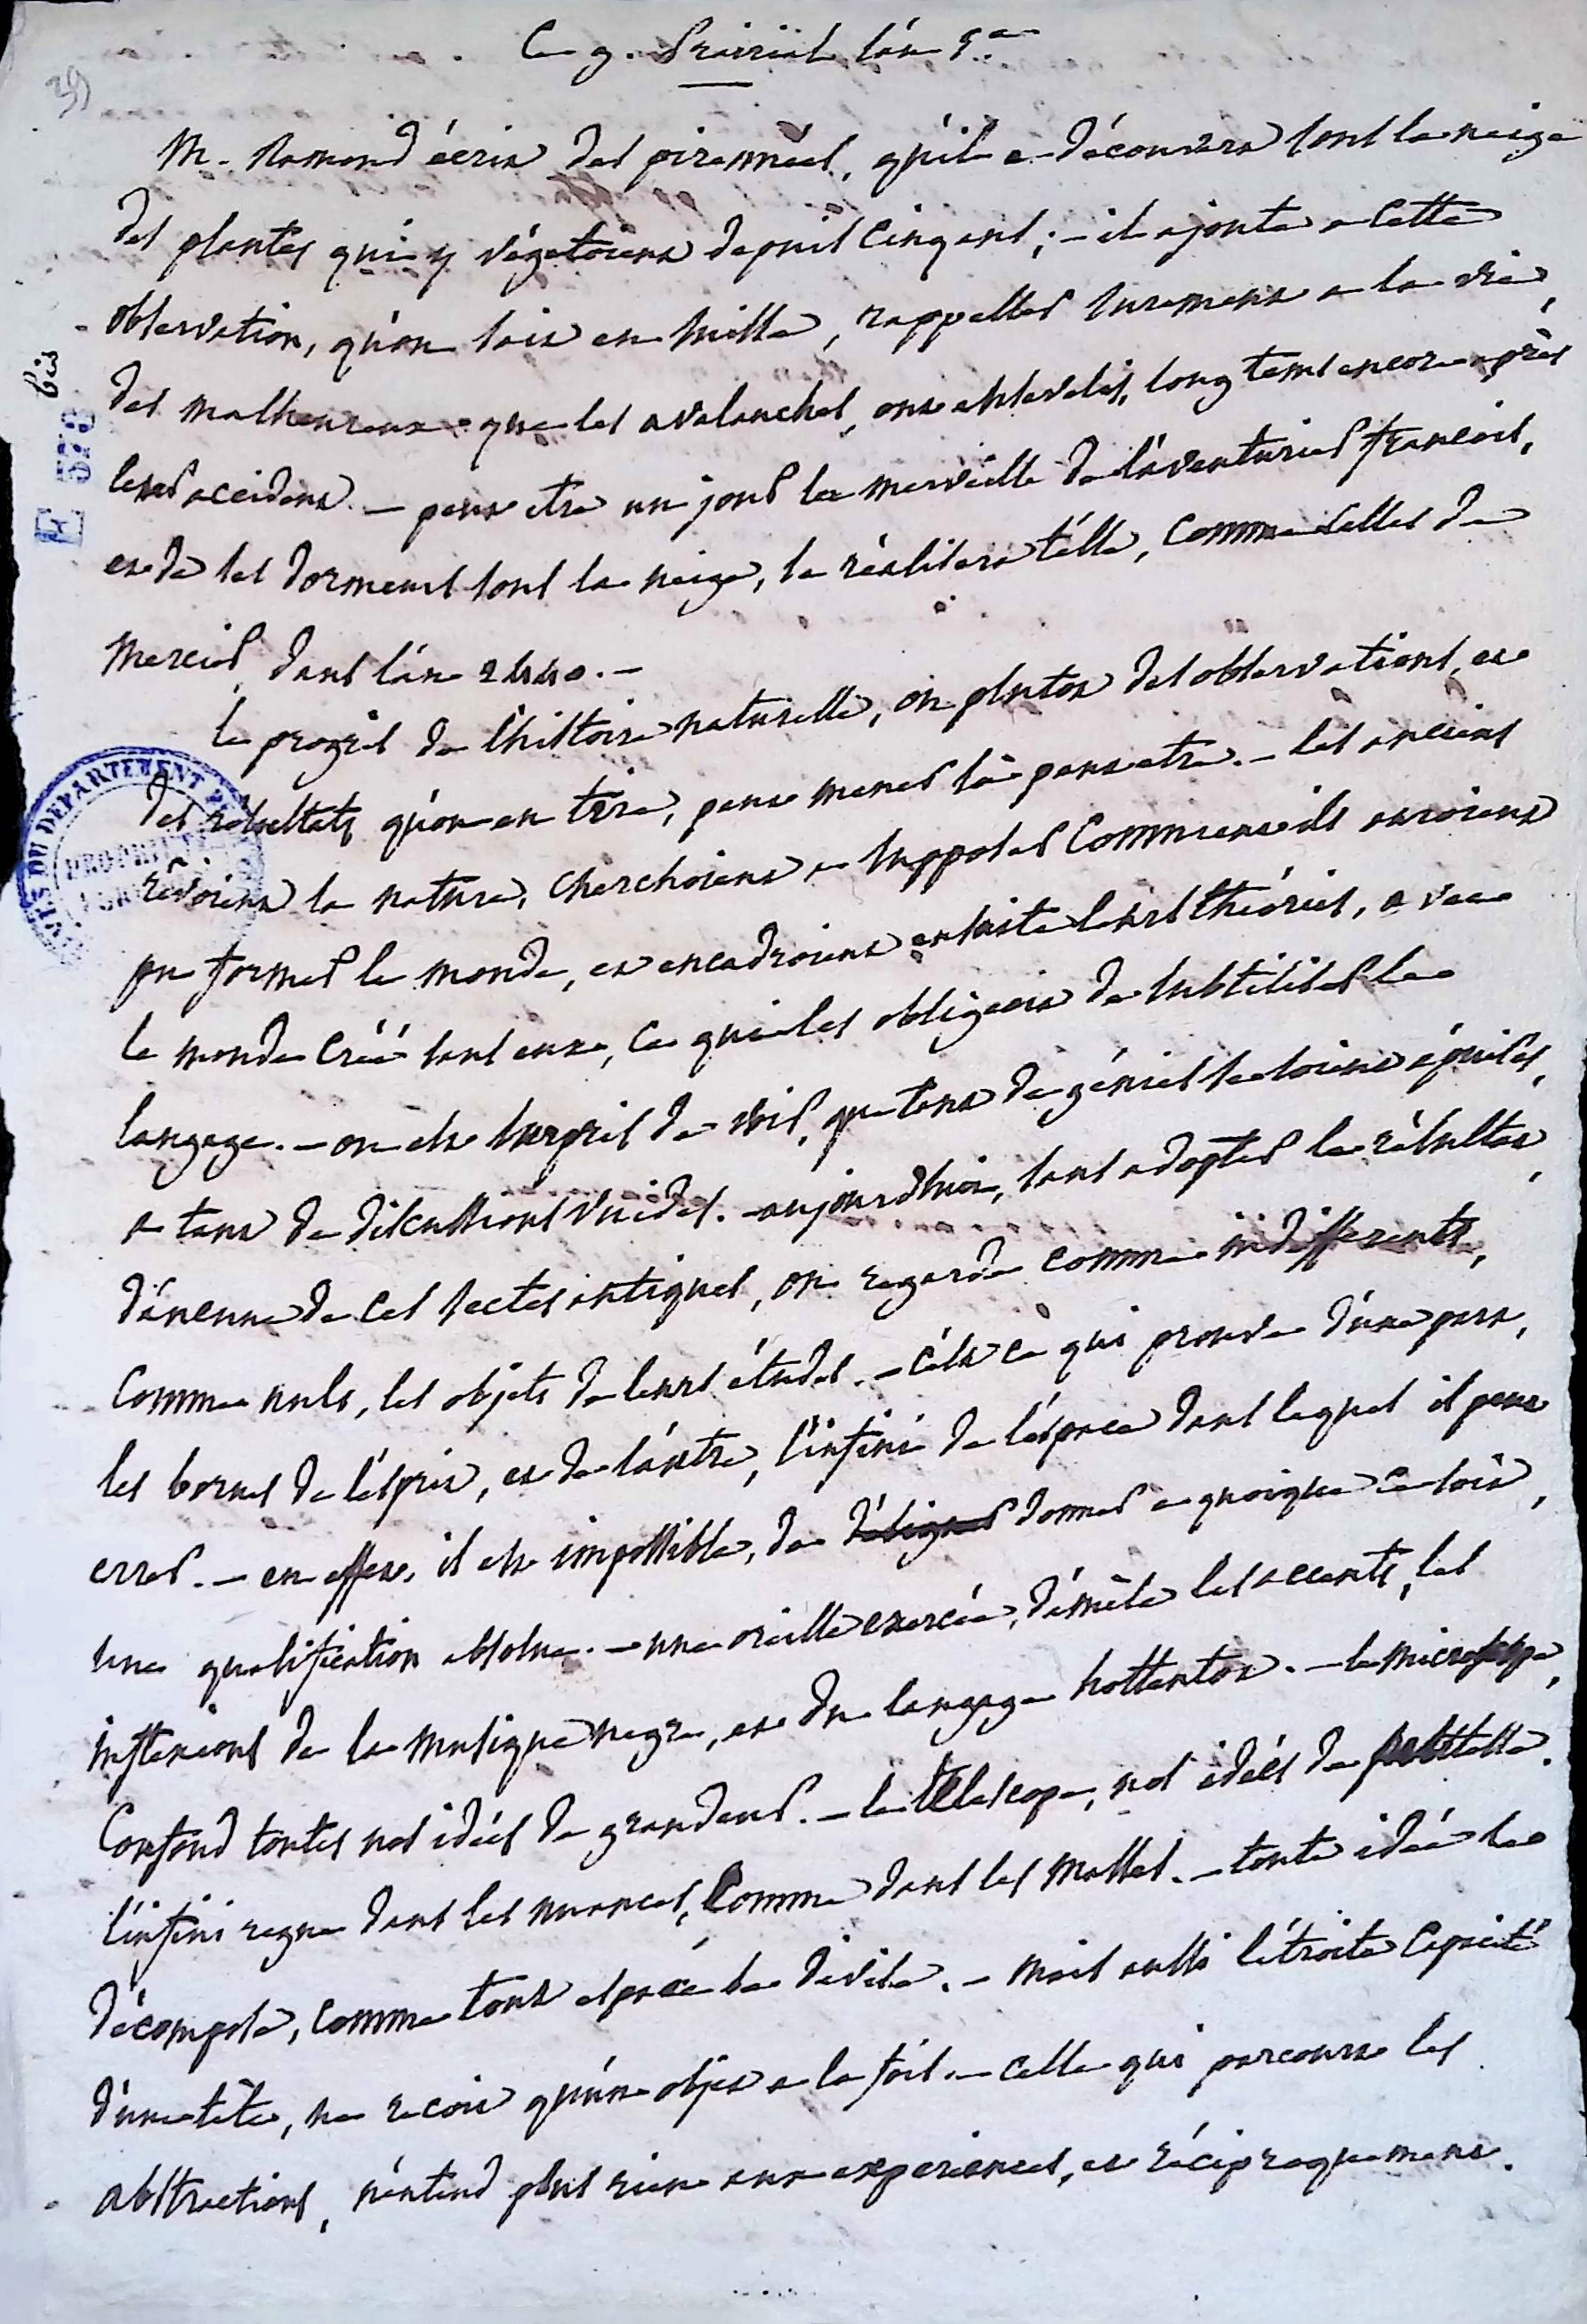 Ce 9. Prairial l'an 5.e
39
M. Ramond écrit des pirennées, qu'il a découvert sous la neige
des plantes qui y végétoient depuis cinq ans ; - il ajoute a cette
observation, qu'on sait en Suisse, rappeller surement a la vie,
des malheureux que les avalanches, ont ensevelis, long tems encore après
leurs accidens. - peut etre un jour la merveille de l'aventurier françois,
et de ses dormeurs sous la neige, se réalisera t'elle, comme celles de
Mercier, dans l'an 2440. -
le progrès de l'histoire naturelle, ou plutot des observations, et
des résultats qu'on en tire, peut mener là peut etre. - les anciens
rêvoient la nature, cherchoient a supposer comment ils auroient
pu former le monde, et encadroient ensuite leurs théories, avec
le monde créé sans eux, ce qui les obligeoit de subtiliser le
langage. - on est surpris de voir, que tant de génies se soient épuisés,
a tant de discussions vuides. - aujourdhui, sans adopter le résultat,
d'aucune de ces sectes antiques, on regarde comme indifferents,
comme nuls, les objets de leurs études. - c'est ce qui prouve d'une part,
les bornes de l'esprit, et de l'autre, l'infini de l'espace dans lequel il peut
errer. - en effet, il est impossible, de désigner donner a quoique ce soit,
une qualification absolue. - une oreille exercée, démêle les accents, les
inflexions de la musique negre, et du langage hottentot. - le microscope,
confond toutes nos idées de grandeur. - le télescope, nos idées de petitesse.
l'infini regne dans les nuances, comme dans les masses. - toute idée se
décompose, comme tout espace se divise. - mais aussi l'étroite capacité
d'une tête, ne recoit qu'un objet a la fois. - celle qui parcourt les
abstractions, n'entend plus rien aux experiences, et réciproquement.
E 378 bis
DU DEPARTEMENT
PROPRIÉTÉ